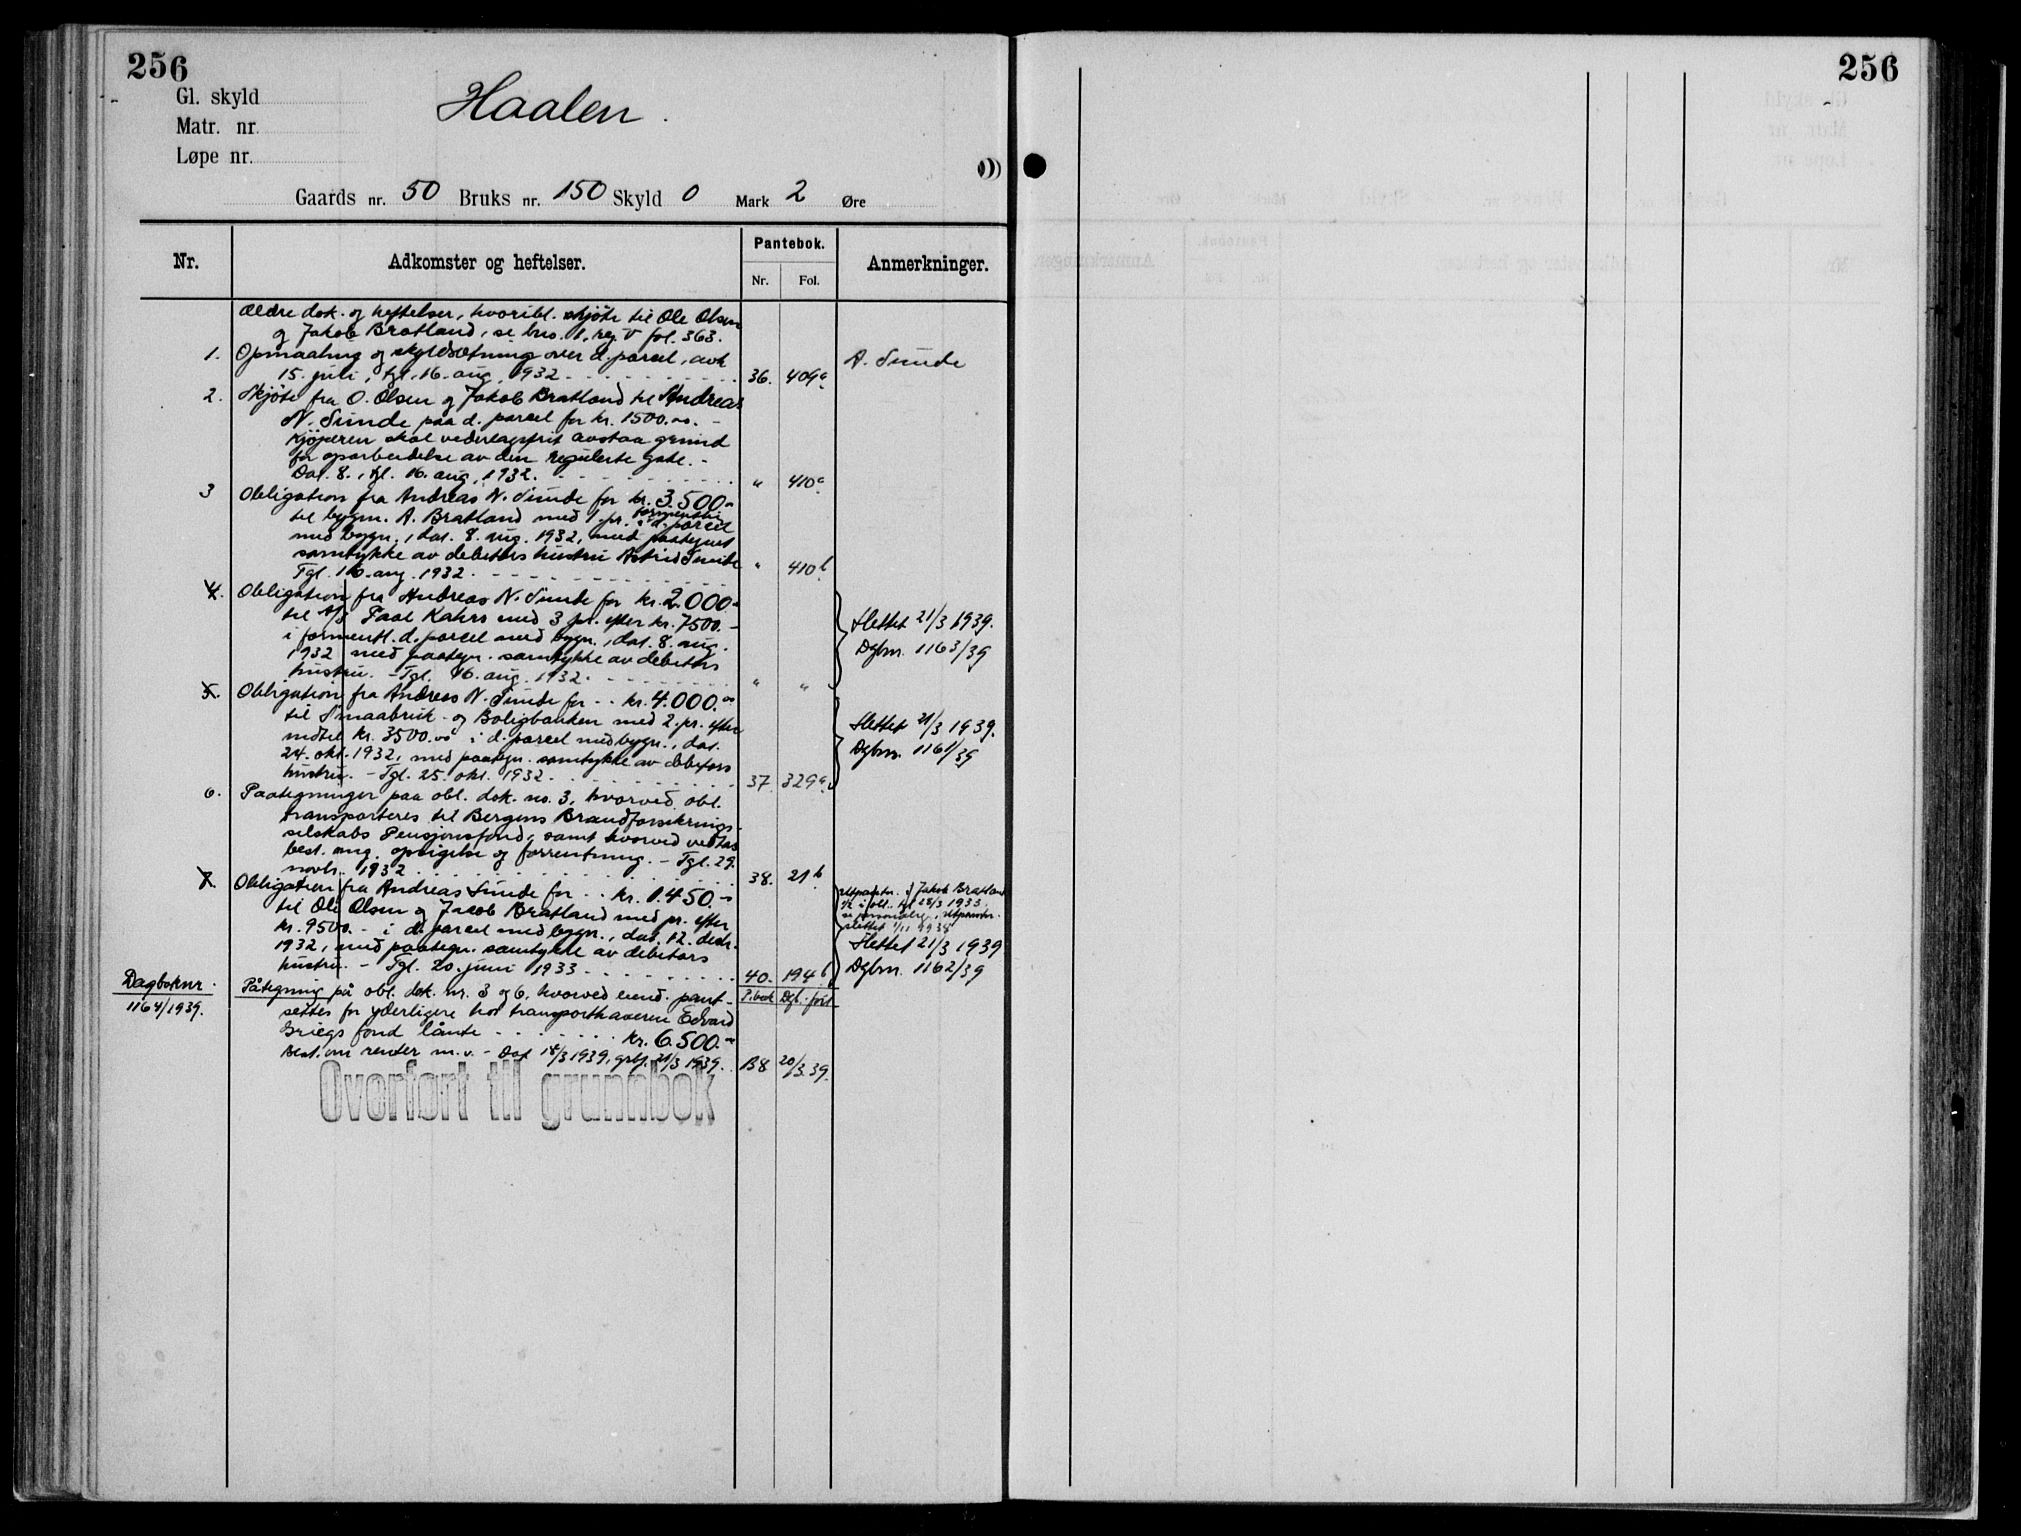 256
256
Gl. skyld
Haalen.
Matr. nr.
Løpe nr.
Gaards nr. 50 Bruks nr. 150 Skyld 0 Mark 2 Øre
Nr. Adkomster og heftelser. Pantebok. Anmerkninger.
Nr. Fol.
Ældre dok. og heftelser, hvoribl. skjøte til Ole Olsen
og Jakob Bratland, se brs. 1, reg. V fol. 363.
1. Opmaaling og skyldsætning over d. parcel, avh.
15. juli, tgl. 16. aug. 1932 36. 409a A. Sunde
2. Skjøte fra O. Olsen og Jakob Bratland til Andreas
N. Sunde paa d. parcel for kr. 1500.00. -
Kjøperen skal vederlagsfrit avstaa grund
for oparbeidelse av den regulerte gate. -
Dat. 8., tgl. 16. aug. 1932. " 410a
3 Obligation fra Andreas N. Sunde for kr. 3.500.-
til bygm. A. Bratland med 1. pr. i formentlig d. parcel
med bygn., dat. 8. aug. 1932, med paategnet
samtykke av debitors hustru Astrid Sunde
Tgl. 16. aug. 1932. " 410b
4. Obligation fra Andreas N. Sunde for kr. 2.000.-
til A/S Paal Kahrs med 3 pr. efter kr. 7500.-
i formentl. d. parcel med bygn., dat. 8. aug.
1932 med paategn. samtykke av debitors
hustru. - Tgl. 16. aug. 1932. " "
Slettet 21/3 1939.
Dgbnr. 1163/39
5. Obligation fra Andreas N. Sunde for - - kr. 4.000.00
til Smaabruk- og Boligbanken med 2. pr. efter
indtil kr. 3500.00 i d. parcel med bygn., dat.
24. okt. 1932, med paategn. samtykke av debitors
hustru. - Tgl. 25. okt. 1932. 37. 329a
Slettet 21/3 1939.
Dgbnr. 1161/39
6. Paategninger paa obl. dok. no. 3, hvorved obl.
transporteres til Bergens Brandforsikrings-
selskabs Pensjonsfond, samt hvorved vedtas
best. ang. opsigelse og forrentning. - Tgl. 29.
novbr. 1932 38. 21b
7. Obligation fra Andreas Sunde for - - kr. 1.450.-
til Ole Olsen og Jacob Bratland med pr. efter
kr. 9500.- i d. parcel med bygn., dat. 12. decbr.
1932, med paategn. samtykke av debitors
hustru. - Tgl. 20. juni 1933 40. 194b
Utpantn. Jakob Bratland
1/2 i obl. tgl. 28/3 1935.
se personalreg., utpantn.
slettet 1/11 1938
Slettet 21/3 1939
Dgbnr. 1162/39
Dagboknr.
1164/1939.
Påtegning på obl. dok. nr. 3 og 6, hvorved eiend. pant-
settes for yderligere hos transporthaveren Edvard
Griegs fond lånte kr. 6.500.-
Best. om renter m.v. - Dat 14/3 1939, grbf. 21/3 1939.
P.bok Dgl. ført
B8 20/3.39.
Overført til grunnbok